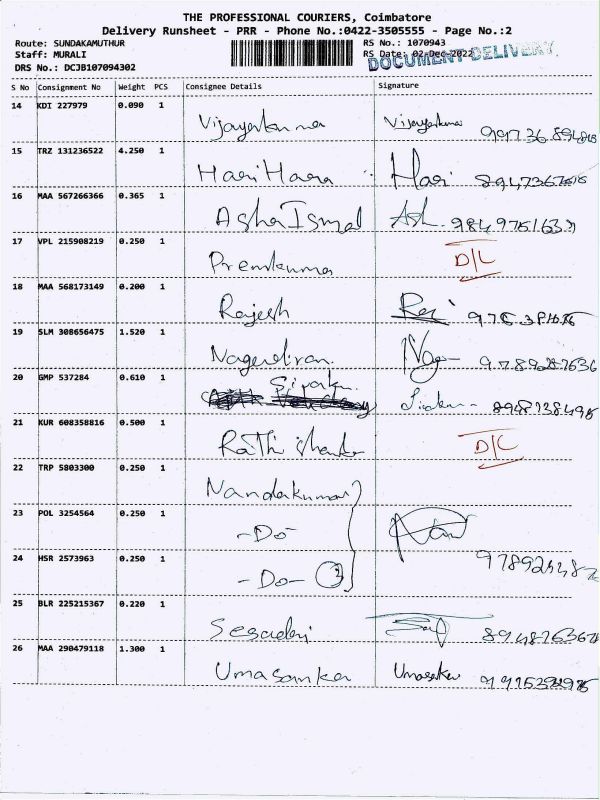 THE PROFESSIONAL COURIERS, Coimbatore
Delivery Runsheet - PRR - Phone No.:0422-3505555 - Page No.:2
Route: SUNDAKAMUTHUR
RS No.: 1070943
Staff: MURALI
RS Date: 02-Dec-2022
DOCUMENT DELIVERY
DRS No.: DCJB107094302
S No Consignment No Weight PCS Consignee Details Signature
14 KDI 227979 0.090 1
Vijayakumar Vijayakumar
15 TRZ 131236522 4.250 1
Hari Hara Hari
16 MAA 567266366 0.365 1
Asha Ismal Ash
17 VPL 215908219 0.250 1
Premkumar D/C
18 MAA 568173149 0.200 1
Rajesh
19 SLM 308656475 1.520 1
Nagendiran Nago 9789287636
20 GMP 537284 0.610 1
21 KUR 608358816 0.500 1
D/C
22 TRP 5803300 0.250 1
Nandakumar
23 POL 3254564 0.250 1
-Do-
24 HSR 2573963 0.250 1
-Do- 3
25 BLR 225215367 0.220 1
26 MAA 290479118 1.300 1
Umasankar